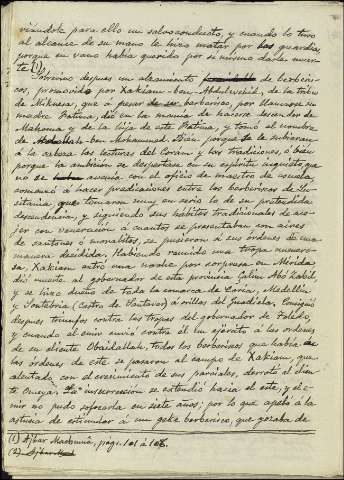 viéndole para ello un salvoconducto, y cuando lo tuvo
al alcance de su mano le hizo matar por los guardias
porque en vano había querido por sí mismo darle muer-
te (1).
Sobrevino despues un alzamiento de berberis-
cos, promovido por Xakiam-ben-Abdelwehid, de la tribu
de Miknasa, que á pesar de ser berberisco, por llamarse su
madre Fátima, dió en la manía de hacerse descender de
Mahoma y de la hija de este Fátima, y tomó el nombre
de Abdallah-ben-Mohammed. Bien porque le hubieran
á la cabeza las lecturas del Corán y las tradiciones, ó bien
porque la ambición se despertara en su espíritu inquieto, que
no se avenía con el oficio de maestro de escuela,
comenzó á hacer predicaciones entre los berberiscos de Lu-
sitania que tomaron muy en serio lo de su pretendida
descendencia, y siguiendo sus hábitos tradicionales de aco-
ger con veneración á cuantos se presentaban con aires
de santones ó morabitos, se pusieron á sus órdenes de una
manera decidida. Habiendo reunido una tropa numero-
sa, Xakiam entró una noche por sorpresa en Mérida
dió muerte al gobernador de esta provincia Çalim Abó Zabil
y se hizo dueño de toda la comarca de Coria, Medellín
y Sontebria (Castro de Santaver) á orillas del Guadiela. Consiguió
despues triunfar contra las tropas del gobernador de Toledo,
y cuando el emir envió contra él un ejército á las órdenes
de su cliente Obaidallah, todos los berberiscos que había
las órdenes de este se pasaron al campo de Xakiam, que
alentado con el crecimiento de sus parciales, derrotó al clien-
te Omeya. La insurrección se extendió hacia el este, y el e-
mir no pudo sofocarla en siete años; por lo que apeló á la
astucia de estimular á un gefe berberisco, que gozaba de
(1) Ajbar Machmuâ, págs. 101 á 106.
(2) Ajbar